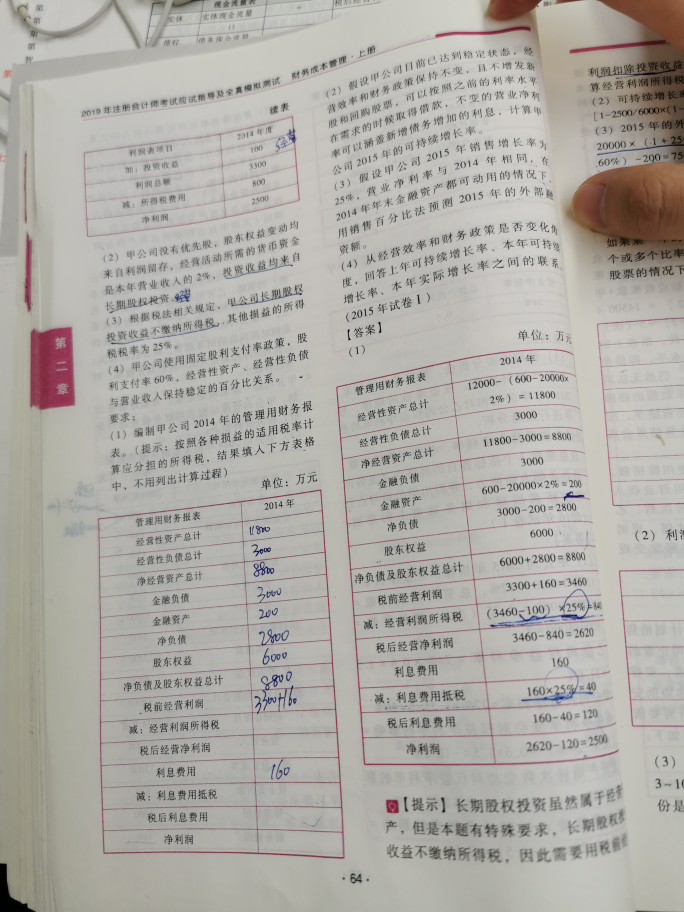 现金流量表
实体
实体现金流量
债权
2019年注册会计师考试应试指导及全真模拟测试 财务成本管理·上册
续表
利润表项目 2014年度
加：投资收益 100
利润总额 3300
减：所得税费用 800
净利润 2500
（2）甲公司没有优先股，股东权益变动均
来自利润留存，经营活动所需的货币资金
是本年营业收入的2%，投资收益均来自
长期股权投资。
（3）根据税法相关规定，甲公司长期股权
投资收益不缴纳所得税，其他损益的所得
税税率为25%。
（4）甲公司使用固定股利支付率政策，股
利支付率60%，经营性资产、经营性负债
与营业收入保持稳定的百分比关系。
要求：
（1）编制甲公司2014年的管理用财务报
表。（提示：按照各种损益的适用税率计
算应分担的所得税，结果填入下方表格
中，不用列出计算过程）
单位：万元
管理用财务报表 2014年
经营性资产总计 11800
经营性负债总计 3000
净经营资产总计 8800
金融负债 3000
金融资产 200
净负债 2800
股东权益 6000
净负债及股东权益总计 8800
税前经营利润 3300+160
减：经营利润所得税
税后经营净利润
利息费用 160
减：利息费用抵税
税后利息费用
净利润
第二章
（2）假设甲公司目前已达到稳定状态，经
营效率和财务政策保持不变，且不增发新
股和回购股票，可以按照之前的利率水平
在需求的时候取得借款，不变的营业净利
率可以涵盖新增债务增加的利息，计算甲
公司2015年的可持续增长率。
（3）假设甲公司2015年销售增长率为
25%，营业净利率与2014年相同，在
2014年年末金融资产都可动用的情况下，
用销售百分比法预测2015年的外部融
资额。
（4）从经营效率和财务政策是否变化角
度，回答上年可持续增长率、本年可持续
增长率、本年实际增长率之间的联系。
（2015年试卷Ⅰ）
【答案】
（1）
单位：万元
管理用财务报表 2014年
经营性资产总计 12000-（600-20000×
2%）=11800
经营性负债总计 3000
净经营资产总计 11800-3000=8800
金融负债 3000
金融资产 600-20000×2%=200
净负债 3000-200=2800
股东权益 6000
净负债及股东权益总计 6000+2800=8800
税前经营利润 3300+160=3460
减：经营利润所得税 （3460-100）×25%=840
税后经营净利润 3460-840=2620
利息费用 160
减：利息费用抵税 160×25%=40
税后利息费用 160-40=120
净利润 2620-120=2500
【提示】长期股权投资虽然属于经营
产，但是本题有特殊要求，长期股权投
收益不缴纳所得税，因此需要用税前
·64·
利润扣除投资收益
算经营利润所得税
（2）可持续增长
[1-2500/6000×(1-
（3）2015年的外
20000×（1+25
60%）-200=75
如果某
个或多个比率
股票的情况下
（2）利
（3）
3~10
份是